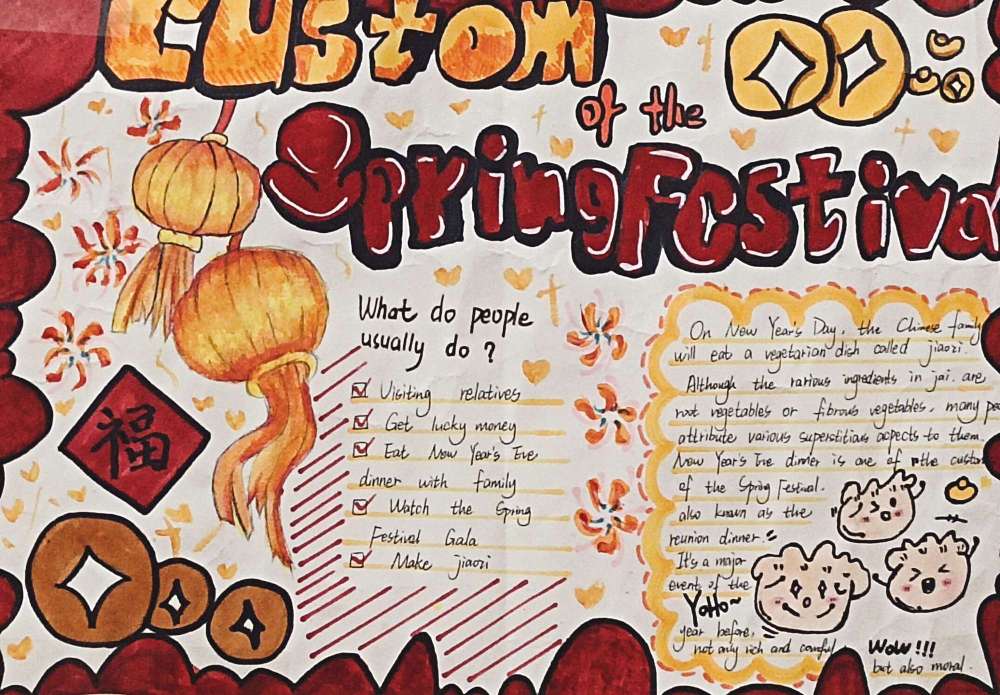 Custom
of the
Spring Festival
福
What do people
usually do ?
Visiting relatives
Get lucky money
Eat New Year's Eve
dinner with family
Watch the Spring
Festival Gala
Make jiaozi
On New Year's Day, the Chinese family
will eat a vegetarian dish called jiaozi.
Although the rarious ingredients in jai. are
root vegetables or fibrous vegetables, many pe
attribute various superstitious aspects to them.
New Year's Eve dinner is one of the custom
of the Spring Festival.
also known as the
reunion dinner.
It's a major
event of the
YoHo~
year before,
not only rich and
Wow!!!
but also moral.